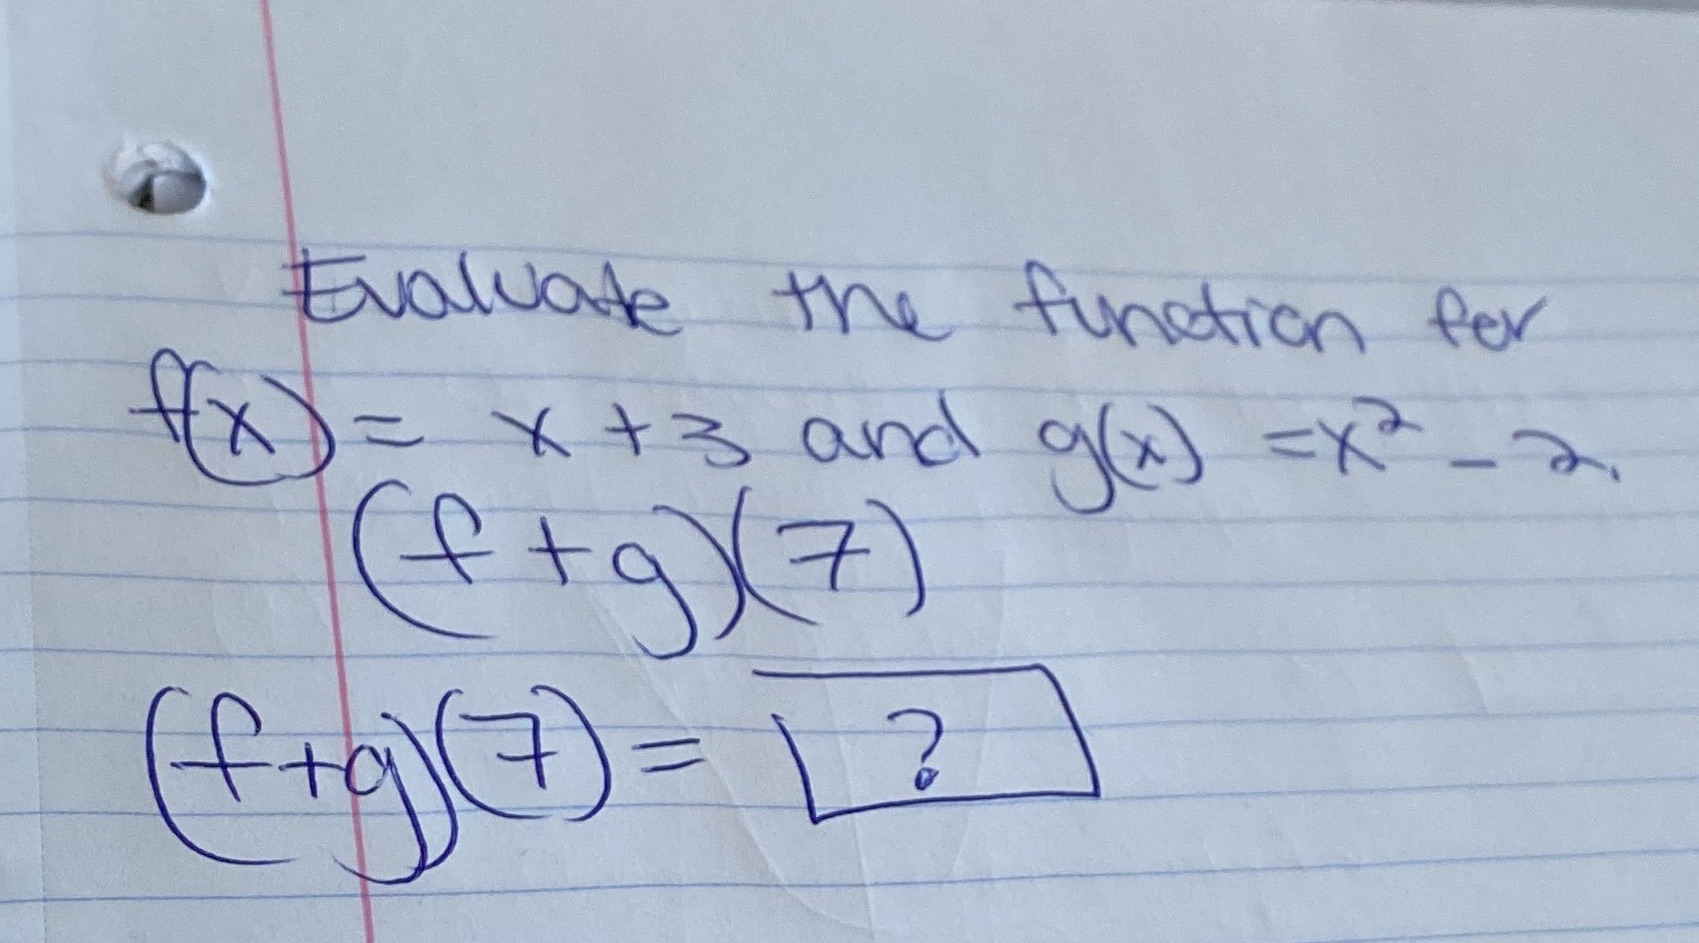 Evaluate the function for
f(x) = x + 3 and g(x) = x² - 2.
(f + g)(7)
(f+g)(7) = ?